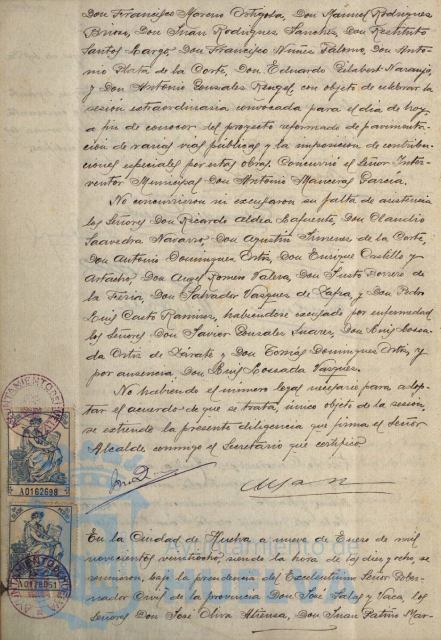 Don Francisco Moreno Ortigosa, Don Manuel Rodriguez
Don Juan Rodriguez Sanchez, Don Restituto
Santos Largo, Don Francisco Nuñez Palomo, Don Anto-
nio Plata de la Corte, Don Eduardo Gilabert Naranjo,
y Don Antonio Gonzalez Rengel, con objeto de celebrar la
sesión extraordinaria convocada para el dia de hoy
a fin de conocer del proyecto reformado de pavimenta-
ción de varias vias públicas y la imposición de contribu-
ciones especiales por estas obras. Concurrió el Señor Inter-
ventor Municipal Don Antonio Manceras Garcia.
No concurrieron ni excusaron su falta de asistencia
los Señores Don Ricardo Aldea Lafuente, Don Claudio
Saavedra Navarro, Don Agustin Jimenez de la Corte,
Don Antonio Dominguez Ortiz, Don Enrique Castillo y
Don Angel Romero Valera, Don Justo Borrero de
la Feria, Don Salvador Vazquez de Zafra, y Don Pedro
Luis Casto Ramirez, habiéndose excusado por enfermedad
los Señores Don Javier Gonzalez Suarez, Don Luis Losa-
da Ortiz de Zárate y Don Tomás Dominguez Ortiz, y
por ausencia Don Luis Losada Vazquez.
No habiendo el número legal necesario para adop-
tar el acuerdo de que se trata, único objeto de la sesión,
se extiende la presente diligencia que firma el Señor
Alcalde conmigo el Secretario que certifico
A0162698
En la Ciudad de Huelva a nueve de Enero de mil
novecientos veintiocho, siendo la hora de las diez y ocho, se
reunieron, bajo la presidencia del Excelentísimo Señor Gober-
nador Civil de la provincia Don José Salas y Vaca, los
Señores Don José Oliva Atienza, Don Juan Patiño Mar-